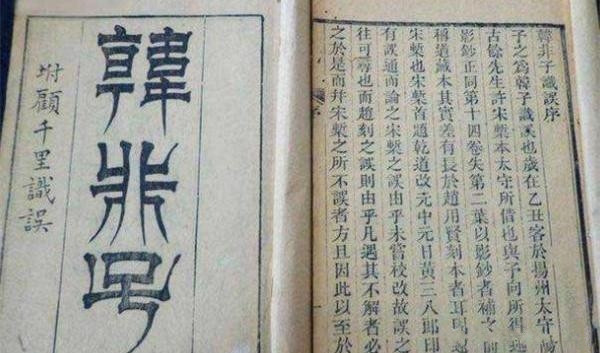 韓非子識誤序
子之爲韓子識誤也歲在乙丑客於揚州太守陽
古餘先生許宋槧本太守所借也與予向所得
影鈔正同第十四卷失第二葉以影鈔者補之
稱道藏本其實差有長於趙用賢刻本者耳
宋槧也宋槧首題乾道改元中元日黃三八郎印
有誤通而論之宋槧之誤由乎未嘗校改故誤之
往可尋也而趙刻之誤則由乎凡遇其不解者必
之於是而并宋槧之所不誤者方且因此以至於
序
韓非子
坿顧千里識誤